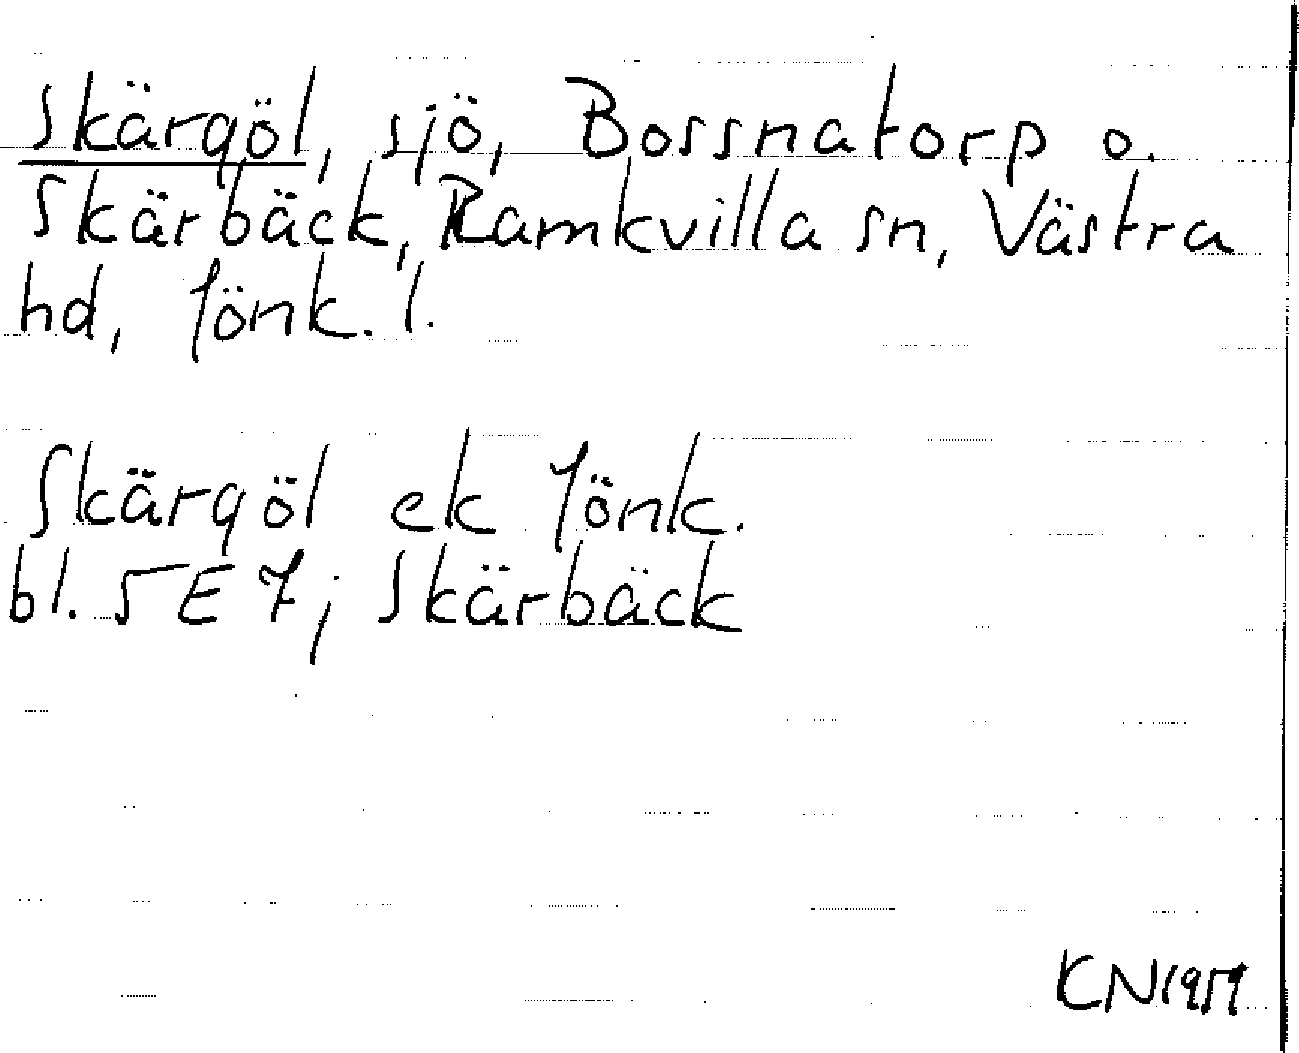 Skärgöl, sjö, Bossnatorp o.
Skärbäck, Ramkvilla sn, Västra
hd, Jönk. l.
Skärgöl ek Jönk.
bl. 5 E 7; Skärbäck
KN 1959